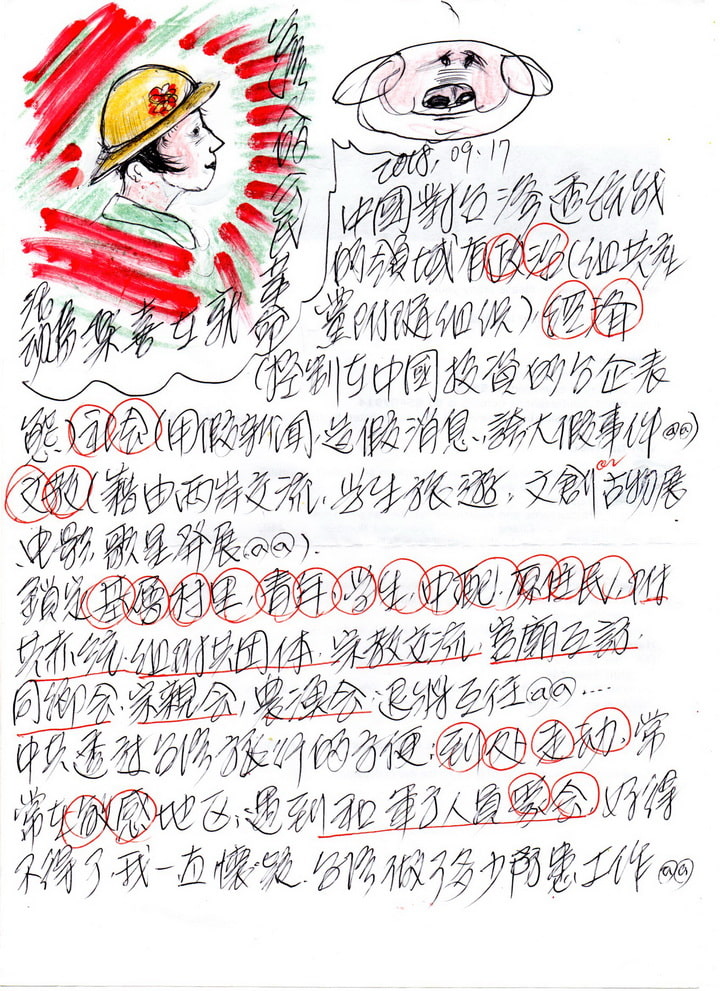 台灣人的公民革命
2018.09.17
中國對台灣透統战
的領域有政治(組共產
黨附隨組织)經濟
(控制在中國投資的台企表
態)社会(用假新闻.造假消息、誇大假事件@@)
文教(藉由兩岸交流.学生旅遊.文創or古物展
电影.歌星發展@@).
鎖定基層村里,青年,学生,中配.原住民,附
共派統.组附共团体.宗教交流.宮廟互訪
同鄉会.宗親会,農漁会.退將互往@@....
中共透过台湾旅行的方便.到处走动.常
常在敏感地区.遇到和軍方人員聚会.好得
不得了.我一直懷疑.台湾做了多少防患工作@@